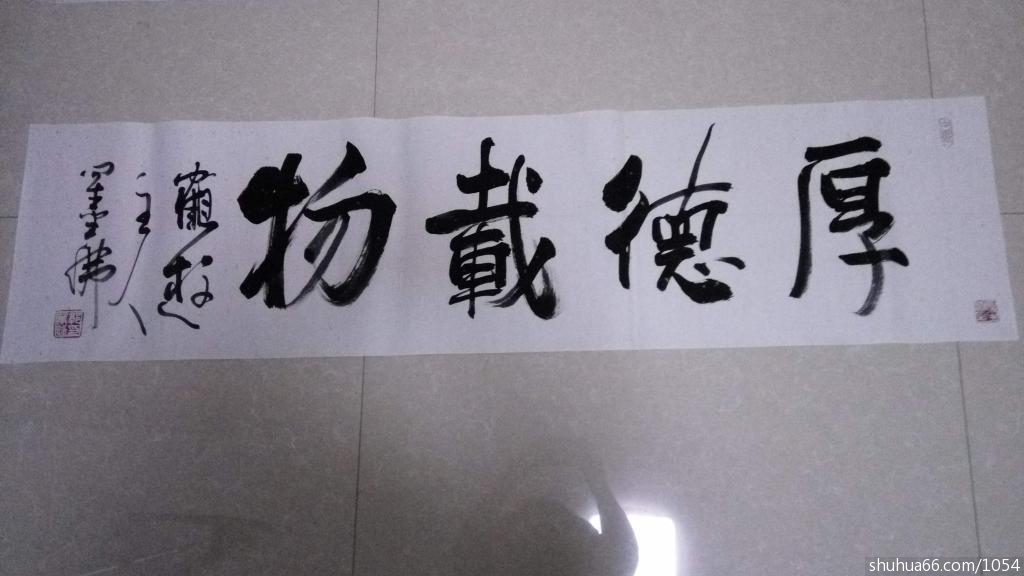 厚德載物
主人
墨佛
shuhua66.com/1054